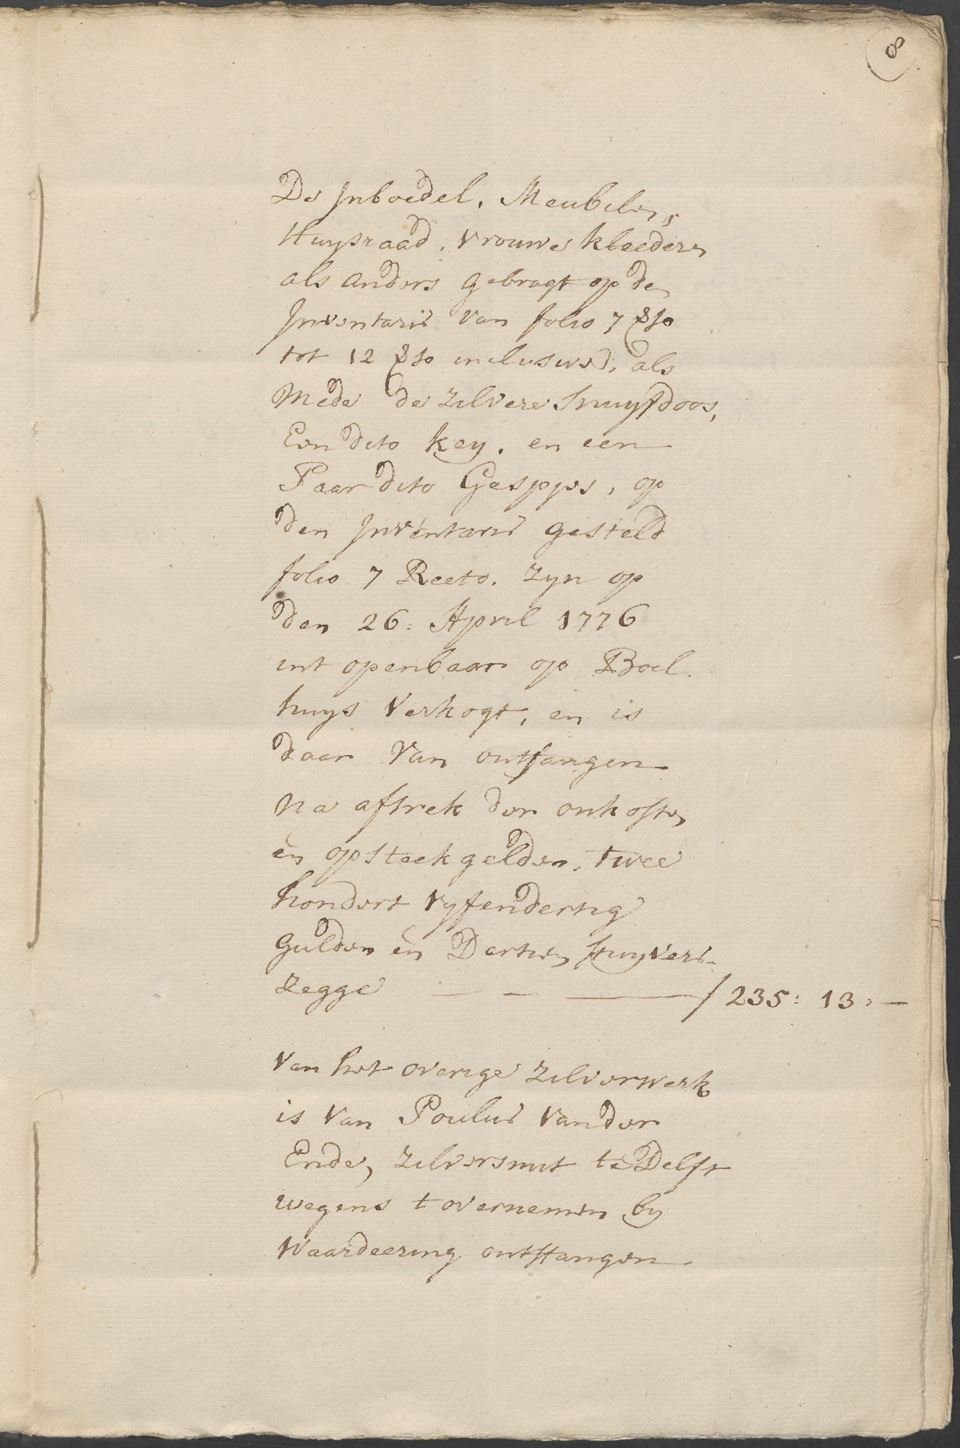 8
De Jnboedel, Meubelen,
Huysraad, vrouwe kleederen
als anders gebragt op de
Jnventaris van folio 7 vso
tot 12 vso inclusive, als
Mede de zilvere snuyfdoos,
Een dito key, en een
Paar dito Gespjes, op
den Jnventaris gesteld
folio 7 Recto. zyn op
den 26: April 1776
int openbaar op Boel
huys verkogt, en is
daar van ontfangen
na aftrek der onkosten
en opsteekgelden, twee
hondert vyfendertig
Gulden en Dertien stuyvers
Zegge — — — ƒ 235: 13: —
Van het overige zilverwerk
is van Poulus vander
Ende, zilversmit te Delft
wegens t overnemen by
Waardeering ontfangen